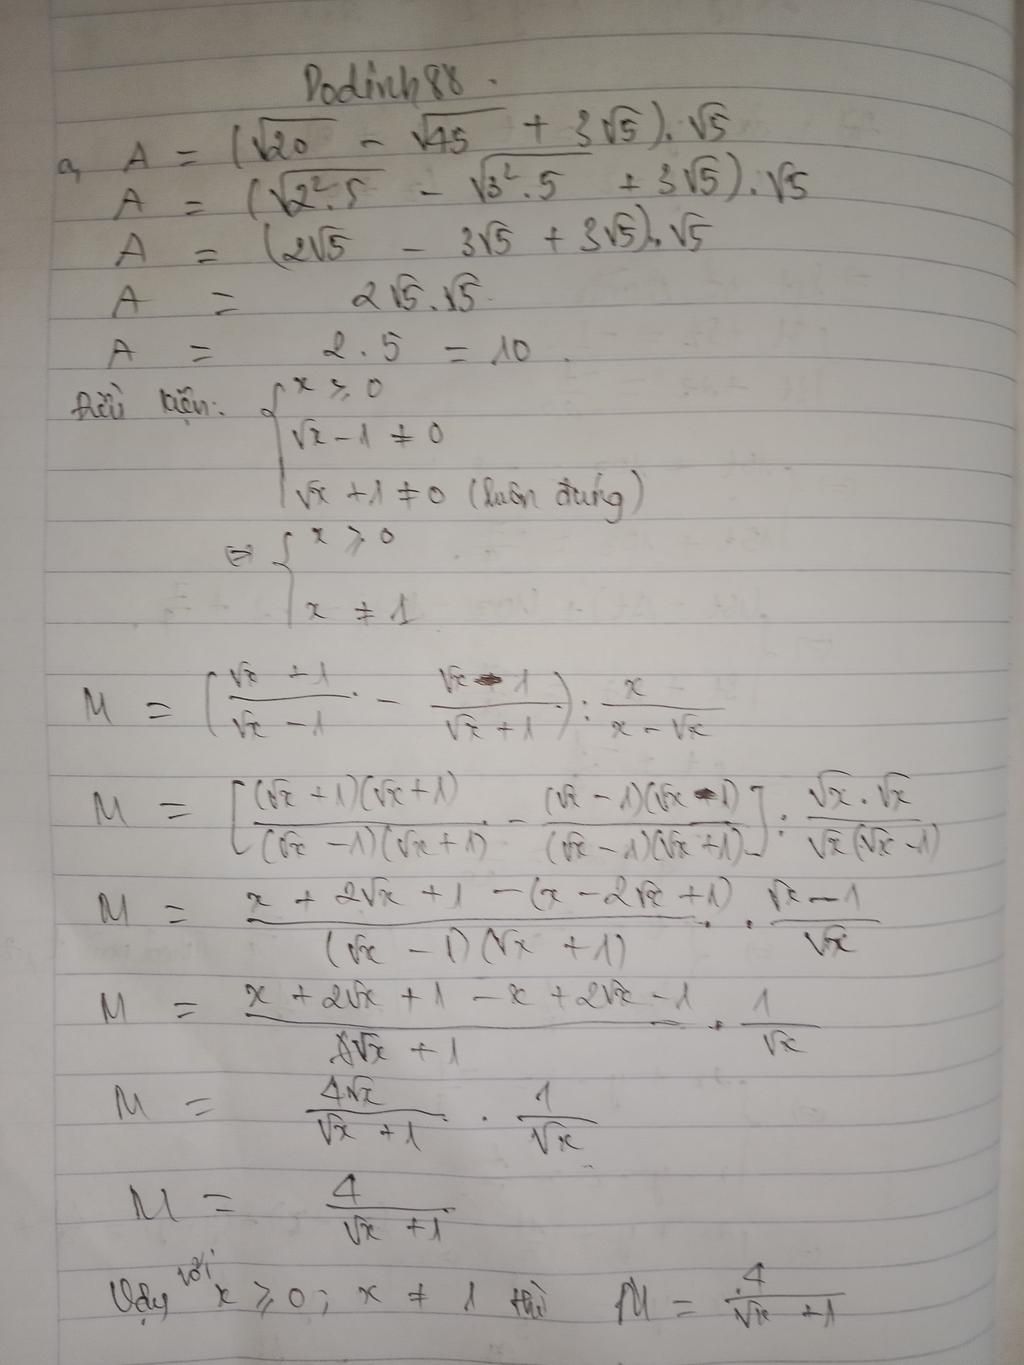 Dodinh88.
a, A = (√20 - √45 + 3√5).√5
A = (√2².5 - √3².5 + 3√5).√5
A = (2√5 - 3√5 + 3√5).√5
A = 2√5.√5
A = 2.5 = 10.
Điều kiện: { x ≥ 0
√x - 1 ≠ 0
√x + 1 ≠ 0 (luôn đúng)
⇔ { x ≥ 0
x ≠ 1
M = ((√x + 1)/(√x - 1) - (√x - 1)/(√x + 1)) : x/(x - √x)
M = [(√x + 1)(√x + 1)/(√x - 1)(√x + 1) - (√x - 1)(√x - 1)/(√x - 1)(√x + 1)] : √x.√x/√x(√x - 1)
M = (x + 2√x + 1 - (x - 2√x + 1))/(√x - 1)(√x + 1) . (√x - 1)/√x
M = (x + 2√x + 1 - x + 2√x - 1)/(√x + 1) . 1/√x
M = 4√x/(√x + 1) . 1/√x
M = 4/(√x + 1)
Vậy với x ≥ 0; x ≠ 1 thì M = 4/(√x + 1)